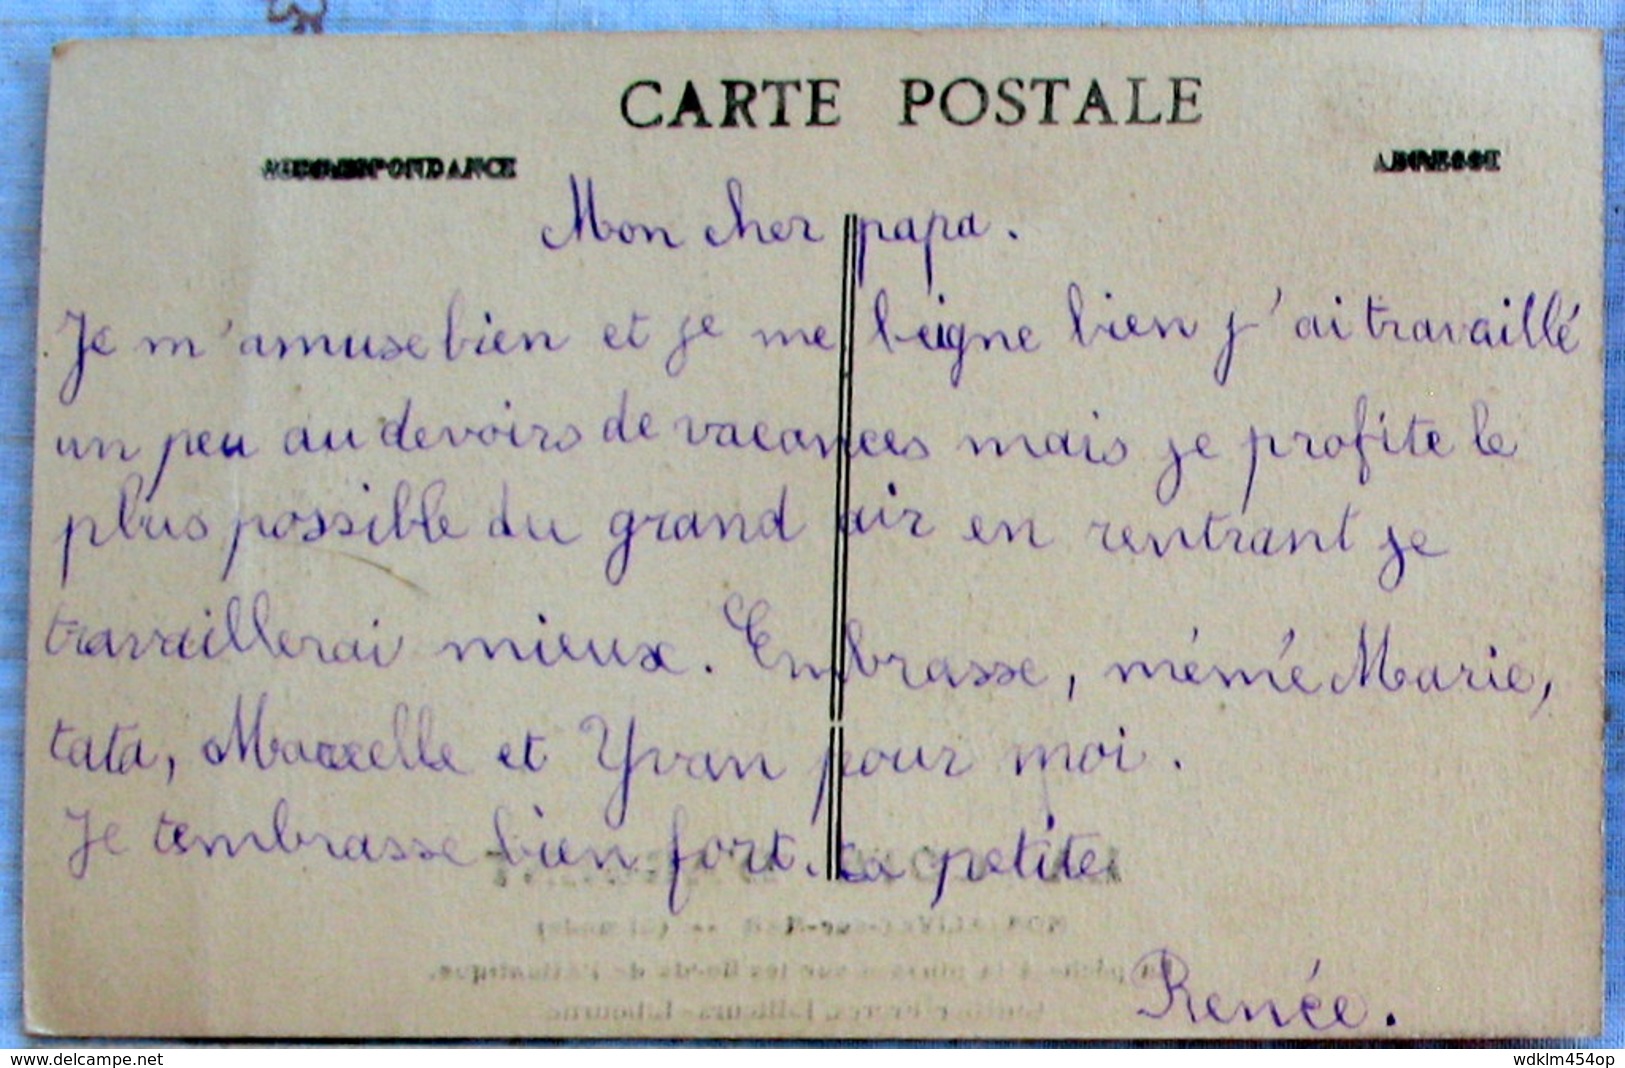 CARTE POSTALE
CORRESPONDANCE
ADRESSE
Mon cher papa.
Je m'amuse bien et je me beigne bien j'ai travaillé
un peu au devoirs de vacances mais je profite le
plus possible du grand air en rentrant je
travaillerai mieux. Embrasse, mémé Marie,
tata, Marcelle et Yvan pour moi.
Je tembrasse bien fort. ta petite
Renée.
www.delcampe.net
wdklm454op